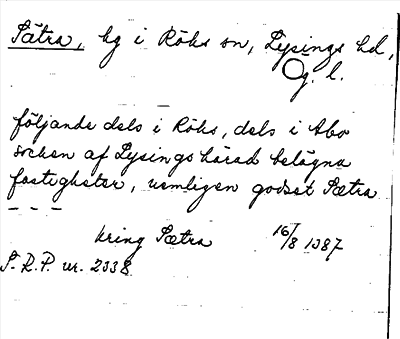 Sätra, hg i Röks sn, Lysings hd,
Ög. l.
följande dels i Röks, dels i Abo
socken af Lysings härad belägna
fastigheter, nemligen godset Sætra
– – –
kring Sætra 16/8 1387
S.R.P. nr. 2338